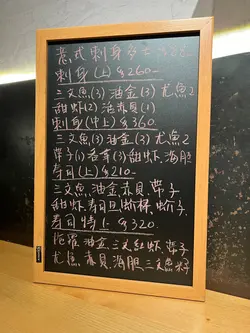 意式刺身多士
刺身(上)$260-
三文魚(3)油金(3)尤魚2
甜虾(2)活赤貝(1)
刺身(中上)$360.
三文魚(3)油金(3)尤魚2
帶子(1)活赤(3)甜虾,海胆
寿司(上)$210-
三文魚,油金,赤貝,帶子
甜虾,寿司旦,蟹柳,
寿司特上$320.
拖羅,油金,三文,紅虾,帶子
尤魚,赤貝,海胆,三文魚籽